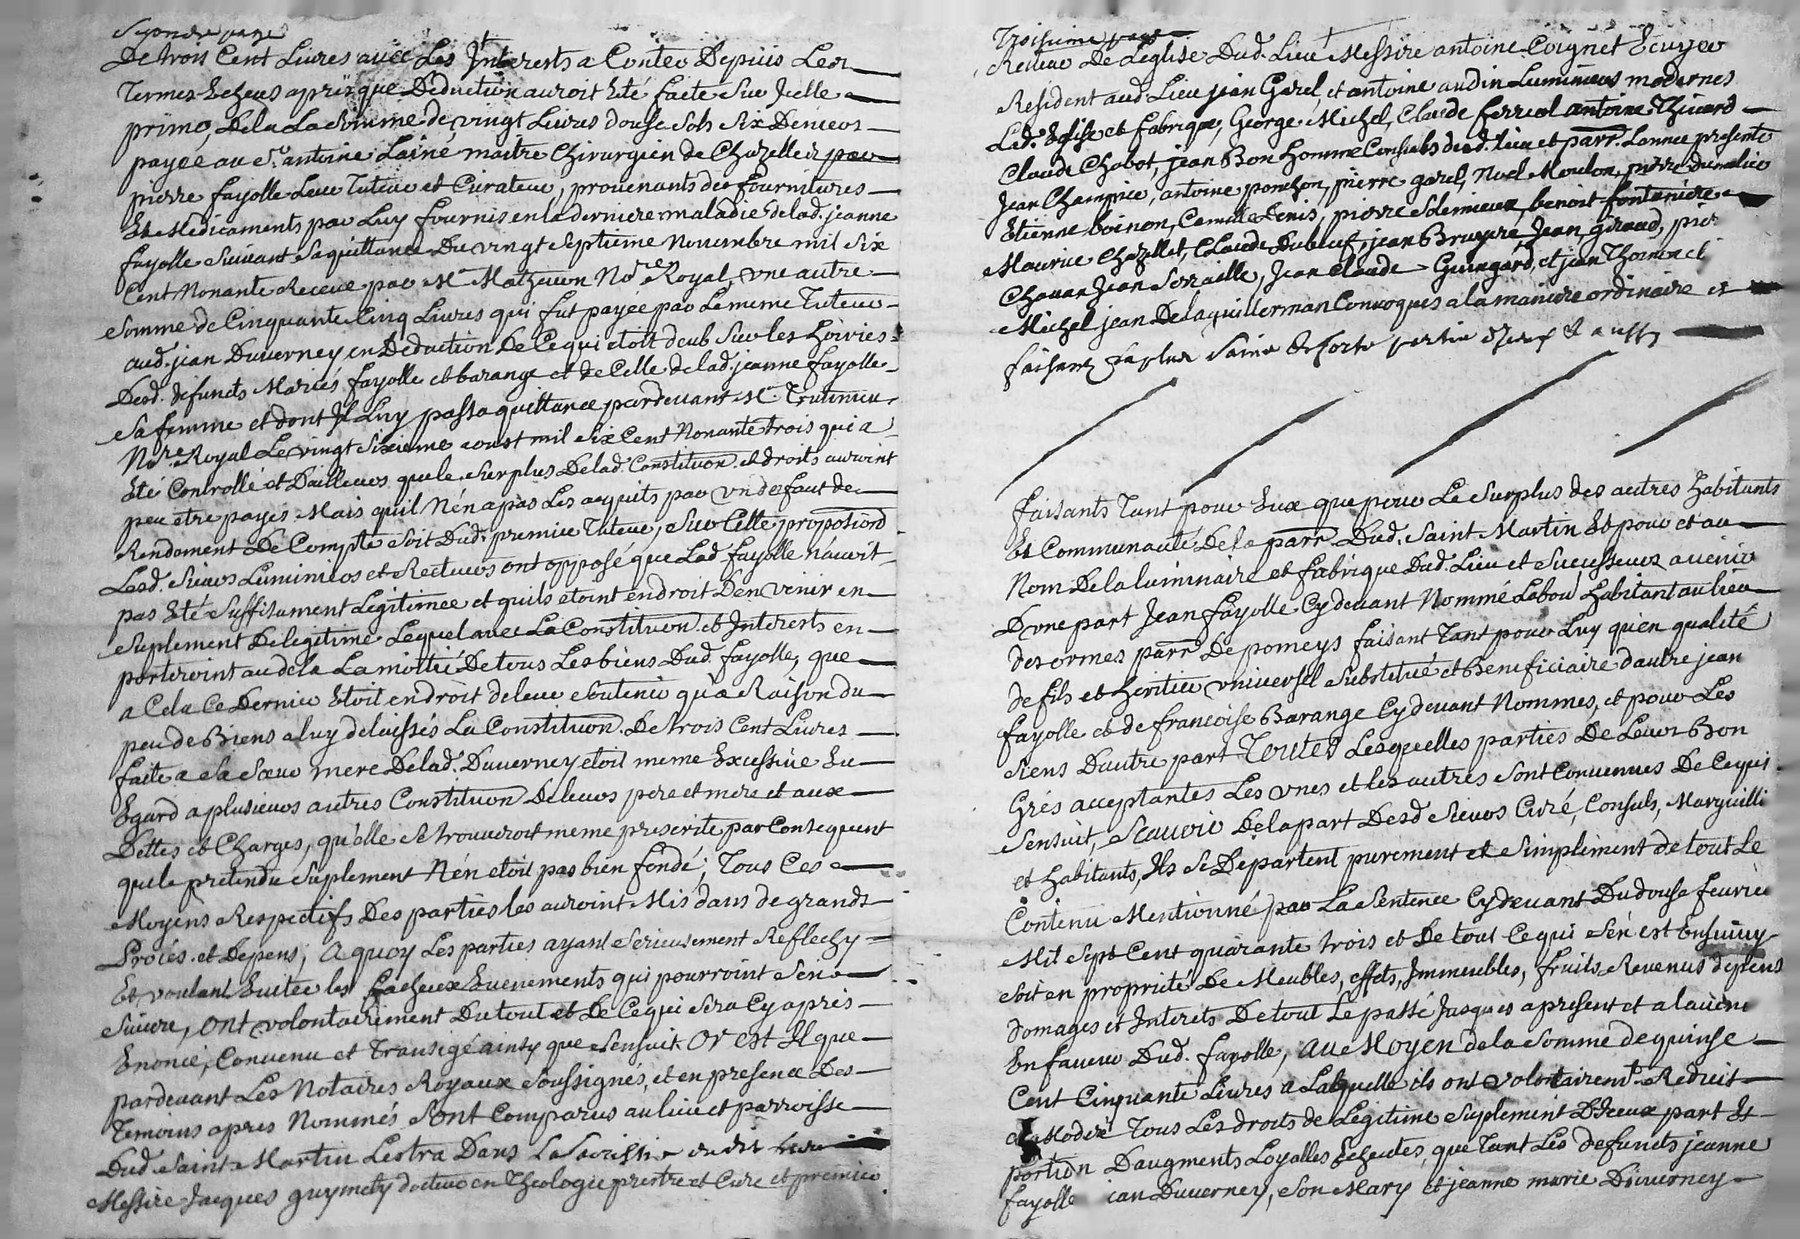 Segonde page
De trois Cent Livres avec Les Interests a Conter Depuis Les
Termes Echeus apris que Deduction auroit Eté faite Sur Icelle
primo, De la La Somme de vingt Livres douse Sols Six Deniers
payee au Sr. antoine Lainé maitre Chirurgien de Chazelles par
pierre fayolle Leur Tuteur et Curateur, provenants des fournitures
Et Médicaments par Luy fournis en la derniere maladie de lad. jeanne
fayolle Suivant Sa quittance Du vingt Septieme Novembre mil Six
Cent Nonante Receue par Me Mathevon Nore Royal, une autre
Somme de Cinquante Cinq Livres qui fut payee par Le meme Tuteur
aud. jean Duverney en Deduction De Ce qui etoit deub Sur les hoiries
Desd. defunts Mariés fayolle et barange et de Celle de lad. jeanne fayolle
Sa femme et dont Il Luy passa quittance pardevant Me
Nore Royal Le vingt Sixieme aoust mil Six Cent Nonante trois qui a
Eté Controllé et D'ailleurs que le Surplus De lad. Constituon. et droits auroint
peu etre payés Mais qu'il N'en a pas Les acquits par un defaut de
Rendement De Compte Soit Dud. premier Tuteur, Sur Cette proposiond
Lesd. Sieurs Luminiers et Recteurs ont opposé que Lad. fayolle n'auroit
pas Eté Suffisament Legitimee et quils etoint en droit D'en venir en
Suplement De legitime Lequel avec La Constituon. et Interests en
porteroint au dela La moitié De tous Les biens Dud. fayolle, que
a Cela Ce Dernier Etoit en droit de leur Soutenir qu'a Raison du
peu de Biens a luy delaissés La Constituon. De trois Cent Livres
faite a Sa Soeur mere De lad. Duverney etoit meme Excessive Eu
Egard a plusieurs autres Constituon De leurs pere et mere et aux
Dettes et Charges, qu'elle Se trouveroit meme prescrite, par Consequent
que le pretendu Suplement N'en etoit pas bien fondé; Tous Ces
Moyens Respectifs Des parties les auroint Mis dans de grands
Procés et Depens; A quoy Les parties ayant Serieusement Reflechy
Et voulant Eviter les facheux Evenements qui pourroint S'en
Suivre, Ont volontairement Du tout et De Ce qui Sera Cy aprés
Enoncé, Convenu et Transigé ainsy que S'ensuit. Or est Il que
pardevant Les Notaires Royaux Soussignés, et en presence Des
Temoins apres Nommés Sont Comparus au lieu et parroisse
Dud. Saint Martin Lestra Dans La Sacristie
Messire Jacques guymety docteur en Theologie pretre et Curé et premier
Troisieme page
Recteur De L'eglise Dud. Lieu Messire antoine Coignet Ecuyer
Resident aud. Lieu jean Garel, et antoine audin Luminiers modernes
Led. Eglise et fabrique, George Michel, Claude ferreol antoine Thivard
Claude Chabot, jean Bon homme Consuls dud. lieu et parr. Lannee presente
Jean Champrier, antoine ponchon, pierre garel, Noel Moulon, pierre dumalier
Etienne boinon, Camille Denis, pierre Solemieux, benoit fonteniere
Maurice Chazellet, Claude Dubeuf, jean Bruyere Jean giraud, pier
Chavan Jean Servaille, Jean Claude Guingard, et jean Thomme et
Michel jean De laquillerman Convoques a la maniere ordinaire et
faisant la plus Saine
faisants Tant pour Eux que pour Le Surplus des autres habitants
Et Communauté De la parr Dud. Saint Martin Et pour et au
Nom De la luminaire et fabrique Dud. Lieu et Successeurs a venir
D'une part Jean fayolle Cy devant Nommé Labou habitant au lieu
des ormes parr. De pomeys faisant Tant pour Luy qu'en qualité
de fils et heritier universel Substitué et Beneficiaire d'autre jean
fayolle et de francoise Barange Cy devant Nommes, et pour Les
Siens Dautre part Toutes Lesquelles parties De Leurs Bon
Grés acceptantes Les unes et les autres Sont Convenues De Ce qui
Sensuit, Scavoir De la part Desd. Sieurs Curé, Consuls, Marguilli
et habitants, Ils Se Departent purement et Simplement de tout Le
Contenu Mentionné par La Sentence Cy devant Du douse fevrier
Mil Sept Cent quarante trois et De tout Ce qui S'en est Ensuivy
Soit en propriété De Meubles, effets, Immeubles, fruits Revenus depens
domages et Interets De tout Le passé Jusques a present et a lavenir
En faveur Dud. fayolle, au Moyen de la Somme de quinse
Cent Cinquante Livres a Laquelle ils ont volontairemt. Reduit
et Moderé Tous Les droits de Legitime Suplement D'Iceux part Et
portion D'augments Loyalles Echeutes, que Tant Les defunts jeanne
fayolle jean Duverney, Son Mary et jeanne marie Duverney